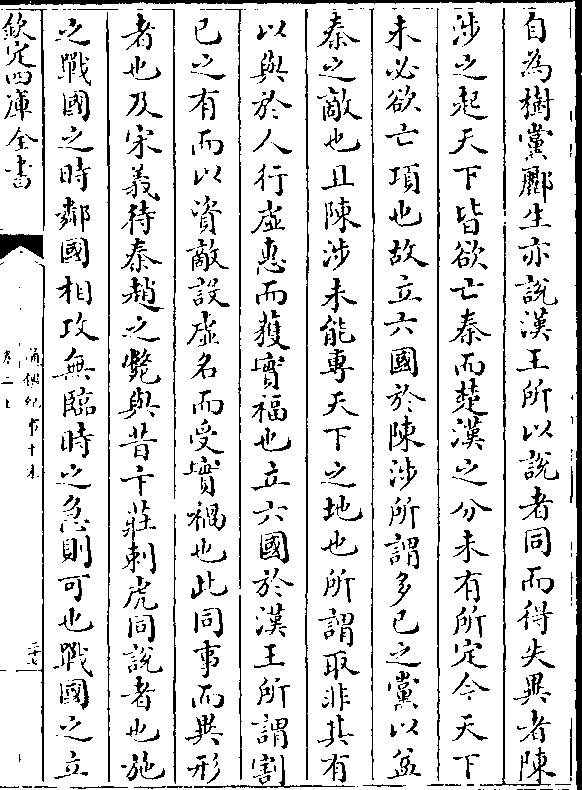 自為樹黨酈生亦說漢王所以說者同而得失異者陳
涉之起天下皆欲亡秦而楚漢之分未有所定今天下
未必欲亡項也故立六國於陳涉所謂多已之黨以益
秦之敵也且陳涉未能專天下之地也所謂取非其有
以與於人行虛惠而獲實福也立六國於漢王所謂割
已之有而以資敵設虛名而受實禍也此同事而異形
者也及宋義待秦趙之斃與昔卞莊刺虎同說者也施
之戰國之時鄰國相攻無臨時之急則可也戰國之立
欽定四庫全書